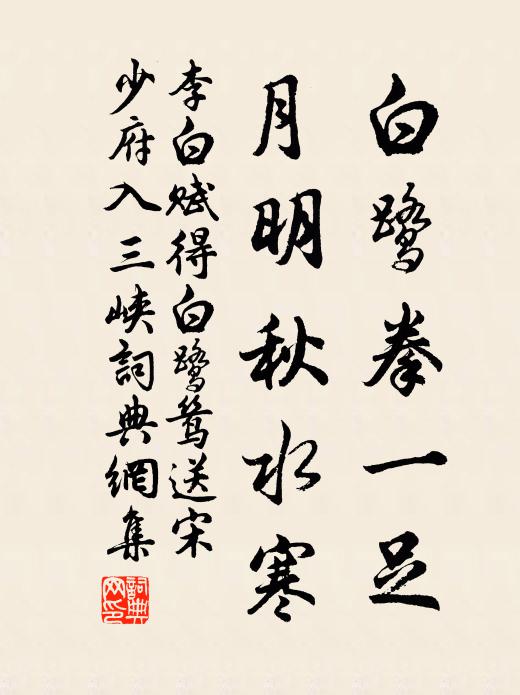 白鹭拳一足
月明秋水寒
李白赋得白鹭鸶送宋
少府入三峡詞典網集
詞典
网印